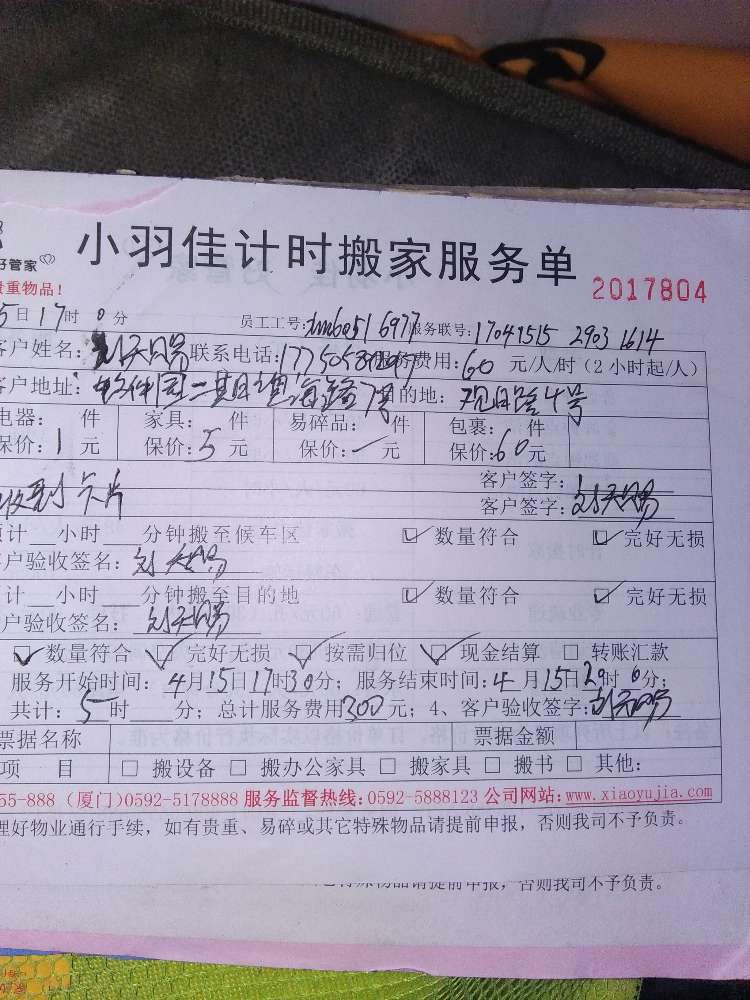 好管家
小羽佳计时搬家服务单
贵重物品!
2017804
5日17时0分 员工工号: 服务联号:17041515 2903 1614
客户姓名:刘天赐 联系电话: 服务费用:60元/人/时(2小时起/人)
客户地址:软件园二期望海路7号 目的地:观日路4号
电器: 件 家具: 件 易碎品: 件 包裹: 件
保价:1元 保价:5元 保价: 元 保价:60元
收到卡片 客户签字:
客户签字:刘天赐
预计 小时 分钟搬至候车区 ☑数量符合 ☑完好无损
客户验收签名:刘天赐
预计 小时 分钟搬至目的地 ☑数量符合 ☑完好无损
客户验收签名:刘天赐
☑数量符合 ☑完好无损 ☑按需归位 ☑现金结算 □转账汇款
服务开始时间:4月15日17时30分;服务结束时间:4月15日 时0分;
共计:5时 分;总计服务费用300元;4、客户验收签字:刘天赐
票据名称 票据金额
项 目 □搬设备 □搬办公家具 □搬家具 □搬书 □其他:
55-888 (厦门)0592-5178888 服务监督热线:0592-5888123 公司网站:www.xiaoyujia.com
理好物业通行手续,如有贵重、易碎或其它特殊物品请提前申报,否则我司不予负责。
物品请提前申报,否则我司不予负责。